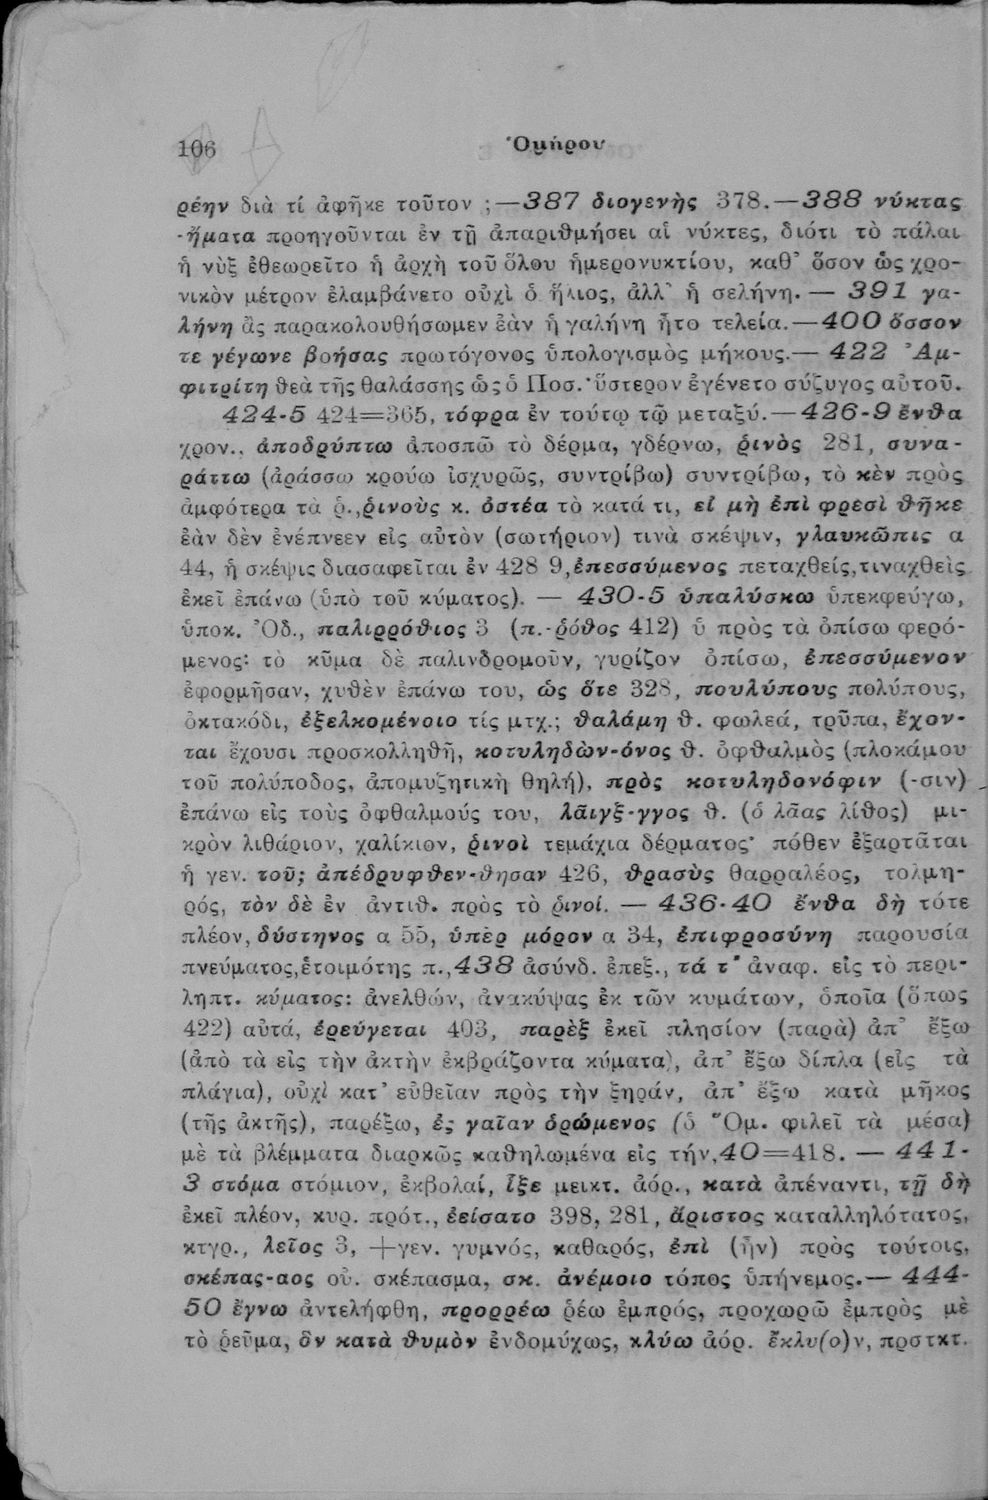 106
Ὁμήρου
ρέην διὰ τί ἀφῆκε τοῦτον ;—387 διογενὴς 378.—388 νύκτας
-ἤματα προηγοῦνται ἐν τῇ ἀπαριθμήσει αἱ νύκτες, διότι τὸ πάλαι
ἡ νὺξ ἐθεωρεῖτο ἡ ἀρχὴ τοῦ ὅλου ἡμερονυκτίου, καθ' ὅσον ὡς χρο-
νικὸν μέτρον ἐλαμβάνετο οὐχὶ ὁ ἥλιος, ἀλλ' ἡ σελήνη. — 391 γα-
λήνη ἂς παρακολουθήσωμεν ἐὰν ἡ γαλήνη ἦτο τελεία.—400 ὅσσον
τε γέγωνε βοήσας πρωτόγονος ὑπολογισμὸς μήκους.— 422 Ἀμ-
φιτρίτη θεὰ τῆς θαλάσσης ὡς ὁ Ποσ.· ὕστερον ἐγένετο σύζυγος αὐτοῦ.
424-5 424=365, τόφρα ἐν τούτῳ τῷ μεταξύ.—426-9 ἔνθα
χρον., ἀποδρύπτω ἀποσπῶ τὸ δέρμα, γδέρνω, ῥινὸς 281, συνα-
ράττω (ἀράσσω κρούω ἰσχυρῶς, συντρίβω) συντρίβω, τὸ κὲν πρὸς
ἀμφότερα τὰ ῥ., ῥινοὺς κ. ὀστέα τὸ κατά τι, εἰ μὴ ἐπὶ φρεσὶ θῆκε
ἐὰν δὲν ἐνέπνεεν εἰς αὐτὸν (σωτήριον) τινὰ σκέψιν, γλαυκῶπις α
44, ἡ σκέψις διασαφεῖται ἐν 428 9, ἐπεσσύμενος πεταχθείς, τιναχθεὶς
ἐκεῖ ἐπάνω (ὑπὸ τοῦ κύματος). — 430-5 ὑπαλύσκω ὑπεκφεύγω,
ὑποκ. Ὀδ., παλιρρόθιος 3 (π.-ῥόθος 412) ὁ πρὸς τὰ ὀπίσω φερό-
μενος: τὸ κῦμα δὲ παλινδρομοῦν, γυρίζον ὀπίσω, ἐπεσσύμενον
ἐφορμῆσαν, χυθὲν ἐπάνω του, ὡς ὅτε 328, πουλύπους πολύπους,
ὀκταπόδι, ἐξελκομένοιο τίς μτχ.; θαλάμη θ. φωλεά, τρῦπα, ἔχον-
ται ἔχουσι προσκολληθῆ, κοτυληδὼν-όνος θ. ὀφθαλμὸς (πλοκάμου
τοῦ πολύποδος, ἀπομυζητικὴ θηλή), πρὸς κοτυληδονόφιν (-σιν)
ἐπάνω εἰς τοὺς ὀφθαλμούς του, λᾶιγξ-γγος θ. (ὁ λᾶας λίθος) μι-
κρὸν λιθάριον, χαλίκιον, ῥινοὶ τεμάχια δέρματος· πόθεν ἐξαρτᾶται
ἡ γεν. τοῦ; ἀπέδρυφθεν-θησαν 426, θρασὺς θαρραλέος, τολμη-
ρός, τὸν δὲ ἐν ἀντιθ. πρὸς τὸ ῥινοί. — 436-40 ἔνθα δὴ τότε
πλέον, δύστηνος α 55, ὑπὲρ μόρον α 34, ἐπιφροσύνη παρουσία
πνεύματος, ἑτοιμότης π., 438 ἀσύνδ. ἐπεξ., τά τ' ἀναφ. εἰς τὸ περι-
ληπτ. κύματος: ἀνελθών, ἀνακύψας ἐκ τῶν κυμάτων, ὁποῖα (ὅπως
422) αὐτά, ἐρεύγεται 403, παρὲξ ἐκεῖ πλησίον (παρὰ) ἀπ' ἔξω
(ἀπὸ τὰ εἰς τὴν ἀκτὴν ἐκβράζοντα κύματα), ἀπ' ἔξω δίπλα (εἰς τὰ
πλάγια), οὐχὶ κατ' εὐθεῖαν πρὸς τὴν ξηράν, ἀπ' ἔξω κατὰ μῆκος
(τῆς ἀκτῆς), παρέξω, ἐς γαῖαν ὁρώμενος (ὁ Ὅμ. φιλεῖ τὰ μέσα)
μὲ τὰ βλέμματα διαρκῶς καθηλωμένα εἰς τήν, 40=418. — 441-
3 στόμα στόμιον, ἐκβολαί, ἷξε μεικτ. ἀόρ., κατὰ ἀπέναντι, τῇ δὴ
ἐκεῖ πλέον, κυρ. πρότ., ἐείσατο 398, 281, ἄριστος καταλληλότατος,
κτγρ., λεῖος 3, +γεν. γυμνός, καθαρός, ἐπὶ (ἦν) πρὸς τούτοις,
σκέπας-αος οὐ. σκέπασμα, σκ. ἀνέμοιο τόπος ὑπήνεμος.— 444-
50 ἔγνω ἀντελήφθη, προρρέω ῥέω ἐμπρός, προχωρῶ ἐμπρὸς μὲ
τὸ ῥεῦμα, ὃν κατὰ θυμὸν ἐνδομύχως, κλύω ἀόρ. ἔκλυ(ο)ν, πρστκτ.